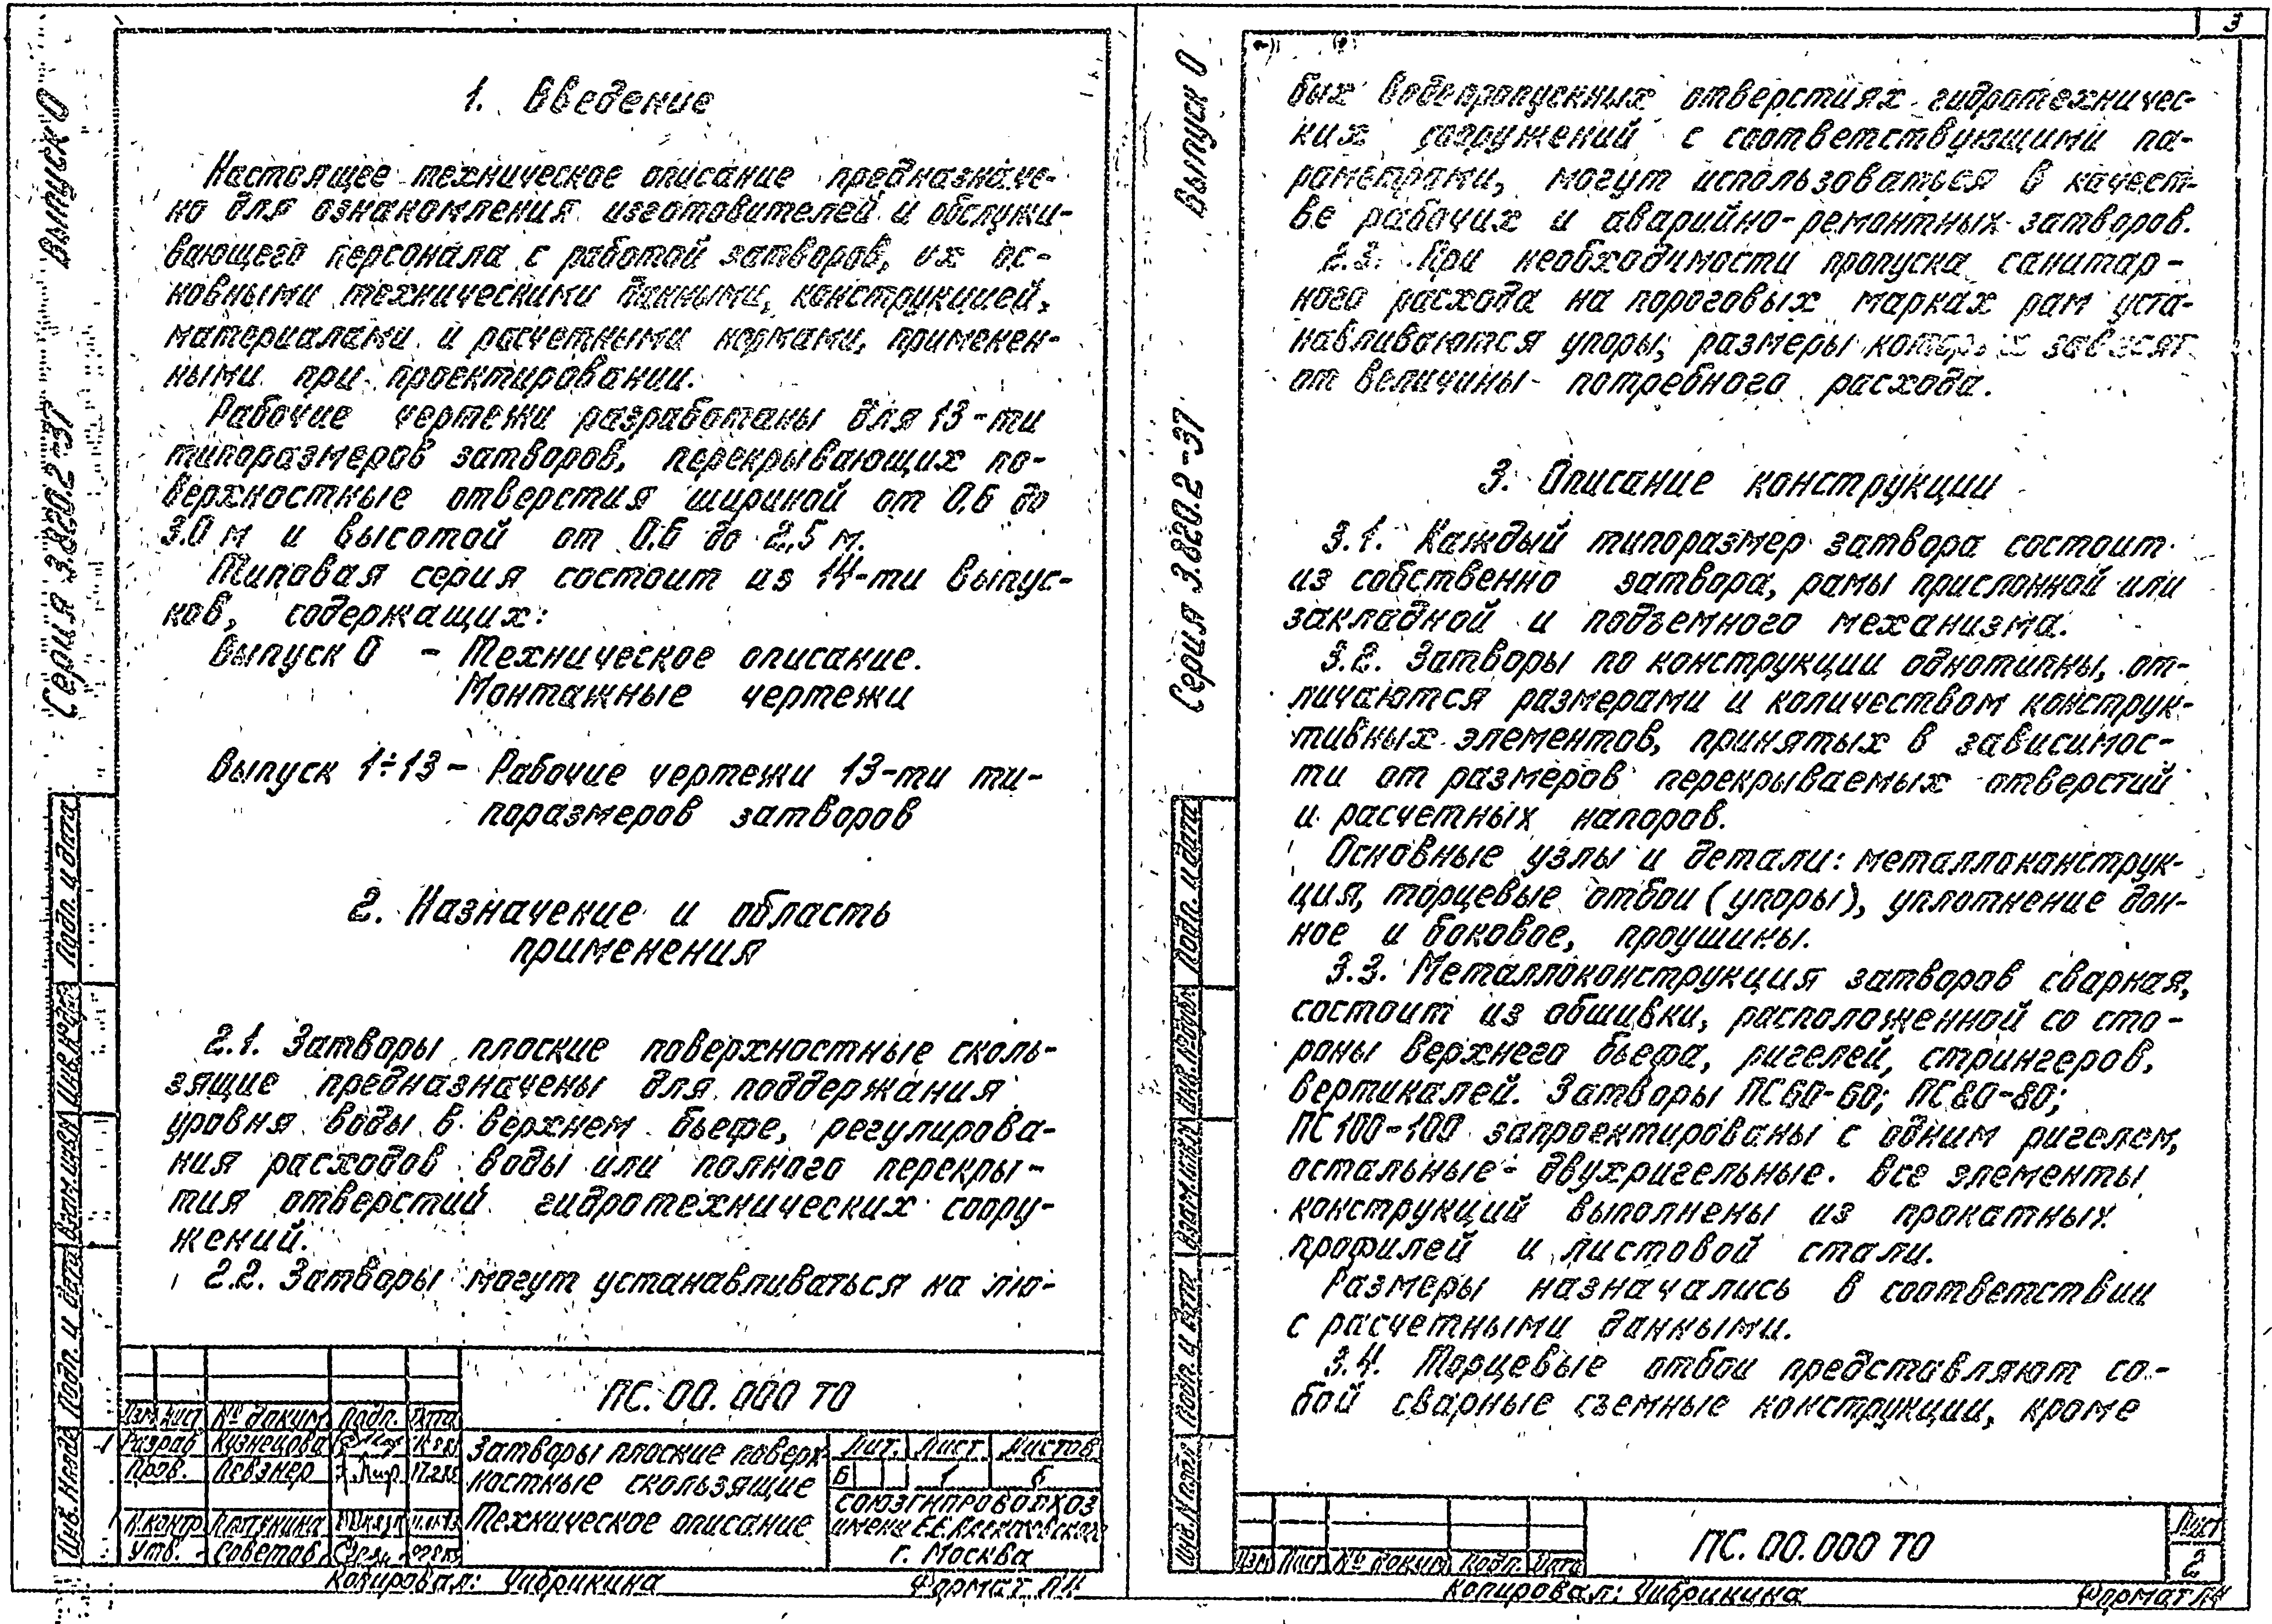 Выпуск 0
Серия 3.820.2-37
1. Введение
Настоящее техническое описание предназначе-
но для ознакомления изготовителей и обслужи-
вающего персонала с работой затворов, их ос-
новными техническими данными, конструкцией,
материалами и расчетными нормами, применен-
ными при проектировании.
Рабочие чертежи разработаны для 13-ти
типоразмеров затворов, перекрывающих по-
верхностные отверстия шириной от 0,6 до
3.0 м и высотой от 0.6 до 2,5 м.
Типовая серия состоит из 14-ти выпус-
ков, содержащих:
Выпуск 0 - Техническое описание.
Монтажные чертежи
Выпуск 1÷13 - Рабочие чертежи 13-ти ти-
поразмеров затворов
2. Назначение и область
применения
2.1. Затворы плоские поверхностные сколь-
зящие предназначены для поддержания
уровня воды в верхнем бьефе, регулирова-
ния расходов воды или полного перекры-
тия отверстий гидротехнических соору-
жений.
2.2. Затворы могут устанавливаться на лю-
Подп. и дата
Взам. инв. №
Подп. и дата
ПС.00.000 ТО
Изм. Лист № докум. Подп. Дата
Разраб. Кузнецова
Пров. Певзнер
Н.контр.
Утв. Советов
Затворы плоские поверх
ностные скользящие
Техническое описание
Лит. Лист Листов
Б 1 6
СОЮЗГИПРОВОДХОЗ
имени Е.Е. Алексеевского
г. Москва
Копировал: Чибрикина
Формат А4
3
Выпуск 0
Серия 3.820.2-37
бых водопропускных отверстиях гидротехничес-
ких сооружений с соответствующими па-
раметрами, могут использоваться в качест-
ве рабочих и аварийно-ремонтных затворов.
2.3. При необходимости пропуска санитар-
ного расхода на пороговых марках рам уста-
навливаются упоры, размеры которых зависят
от величины потребного расхода.
3. Описание конструкции
3.1. Каждый типоразмер затвора состоит
из собственно затвора, рамы прислонной или
закладной и подъемного механизма.
3.2. Затворы по конструкции однотипны, от-
личаются размерами и количеством конструк-
тивных элементов, принятых в зависимос-
ти от размеров перекрываемых отверстий
и расчетных напоров.
Основные узлы и детали: металлоконструк-
ция, торцевые отбои (упоры), уплотнение дон-
ное и боковое, проушины.
3.3. Металлоконструкция затворов сварная,
состоит из обшивки, расположенной со сто-
роны верхнего бьефа, ригелей, стрингеров,
вертикалей. Затворы ПС60-60; ПС80-80;
ПС100-100 запроектированы с одним ригелем,
остальные - двухригельные. Все элементы
конструкций выполнены из прокатных
профилей и листовой стали.
Размеры назначались в соответствии
с расчетными данными.
3.4. Торцевые отбои представляют со-
бой сварные съемные конструкции, кроме
Подп. и дата
Взам. инв. №
Подп. и дата
Изм Лист № докум Подп. Дата
ПС.00.000 ТО
Лист
2
Копировал: Чибрикина
Формат А4